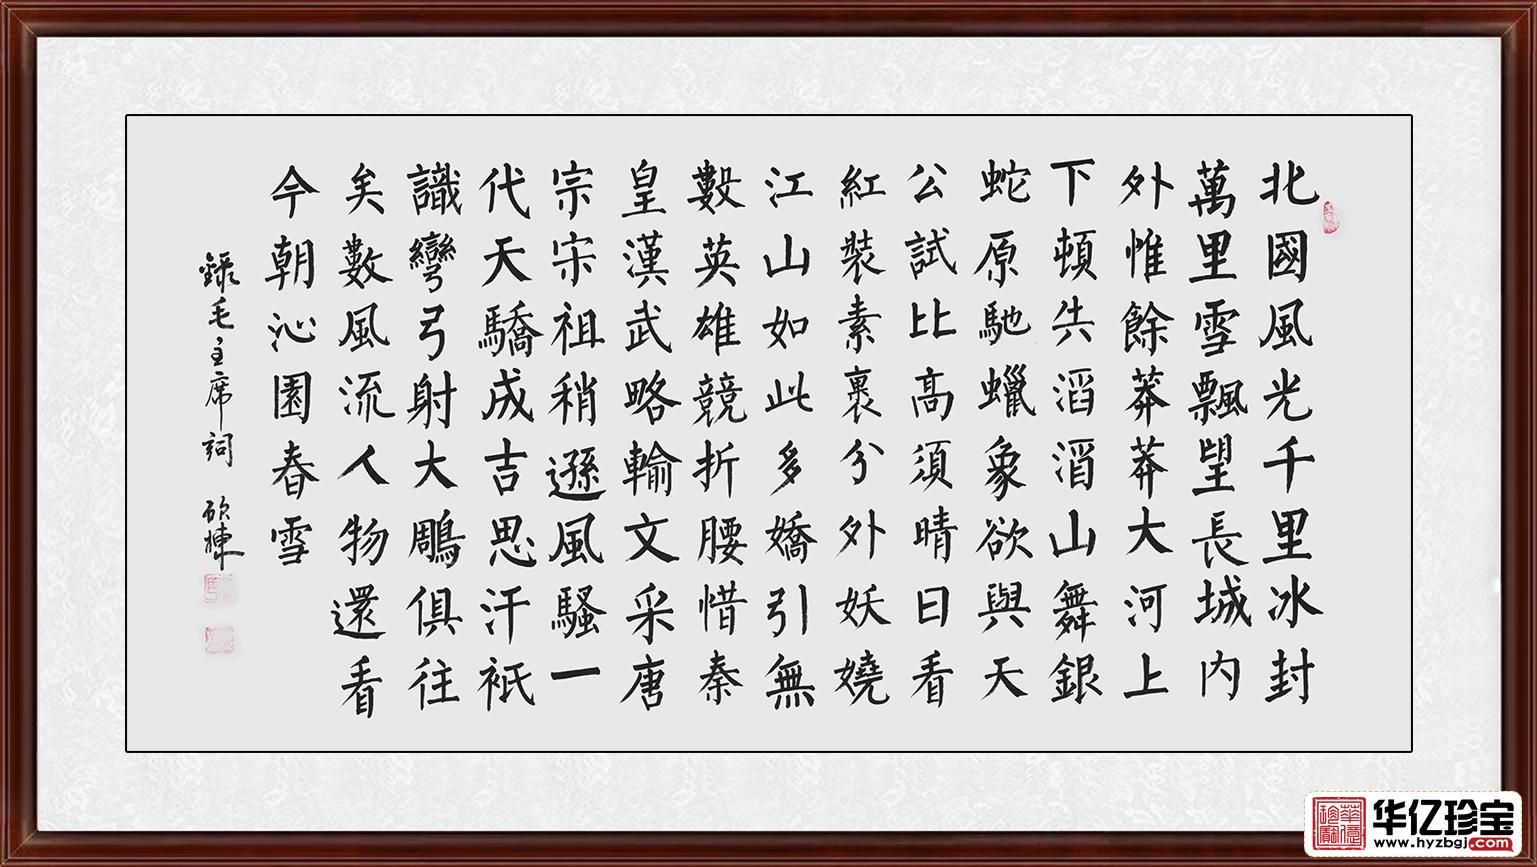 北國風光千里冰封
萬里雪飄望長城内
外惟餘莽莽大河上
下頓失滔滔山舞銀
蛇原馳蠟象欲與天
公試比高須晴日看
紅裝素裹分外妖嬈
江山如此多嬌引無
數英雄競折腰惜秦
皇漢武略輸文采唐
宗宋祖稍遜風騷一
代天驕成吉思汗衹
識彎弓射大鵰俱往
矣數風流人物還看
今朝沁園春雪
録毛主席詞
华亿珍宝
www.hyzbgj.com